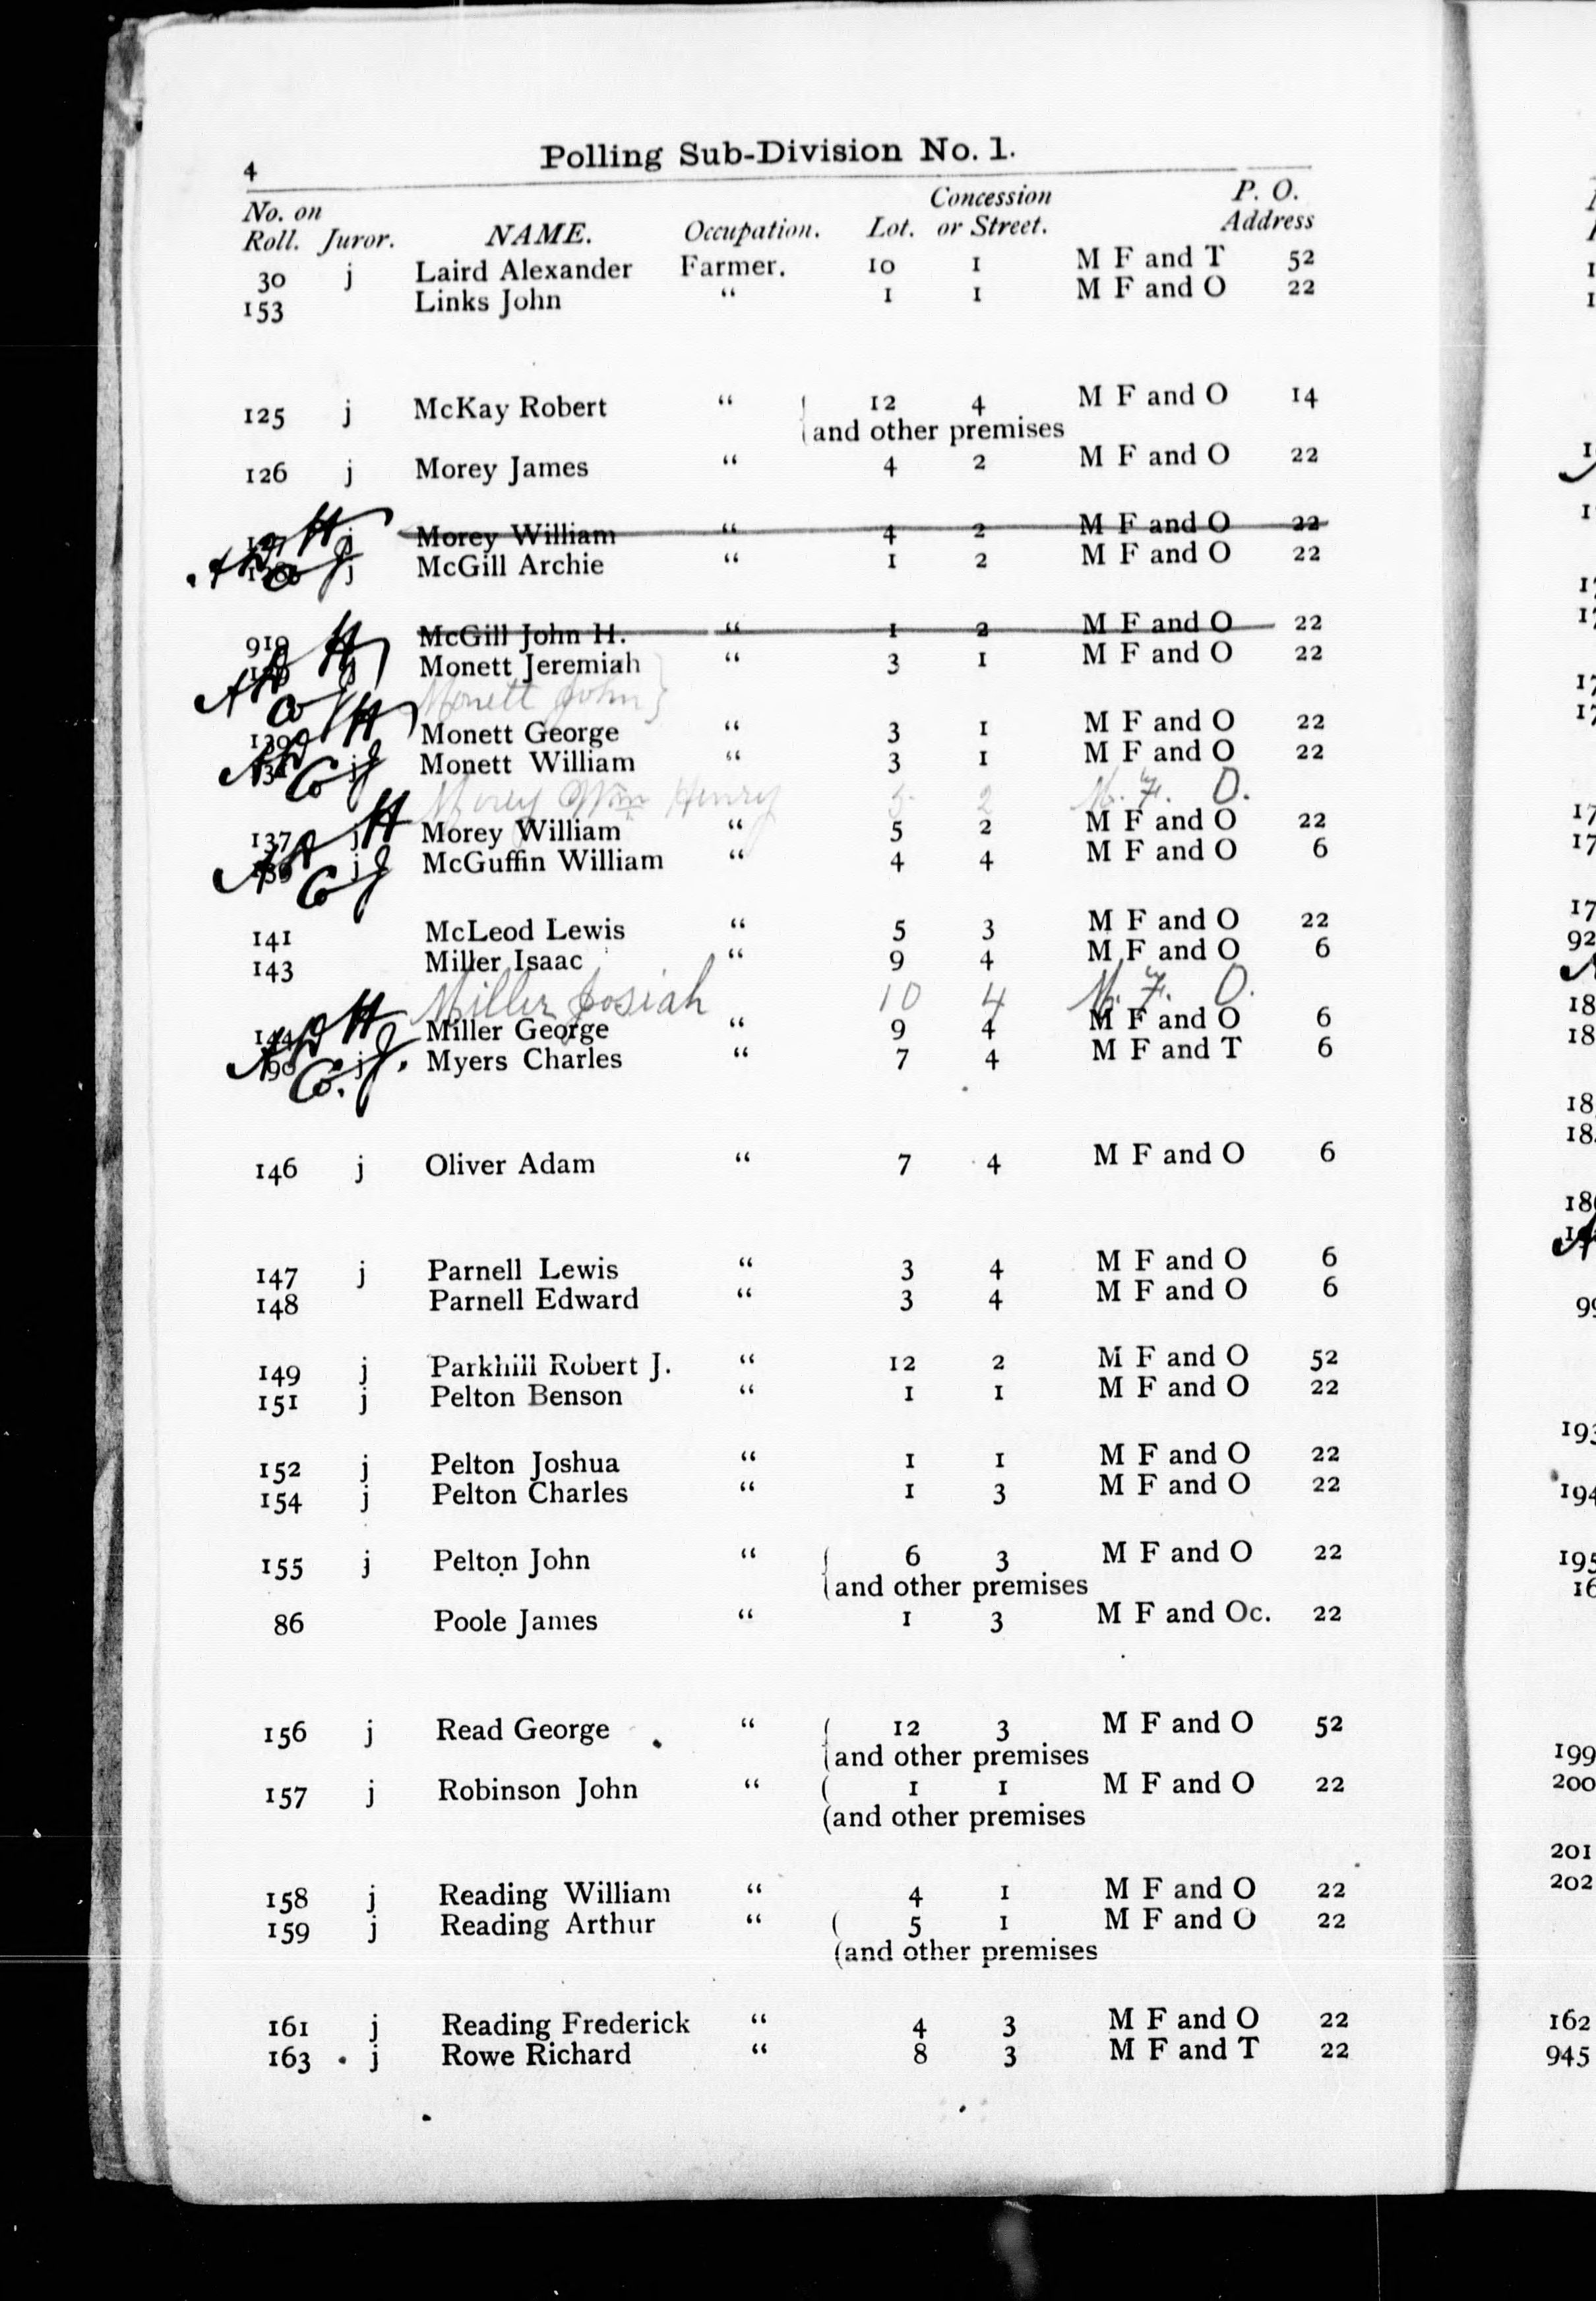 4 Polling Sub-Division No. 1.
No. on Concession P. O.
Roll. Juror. NAME. Occupation. Lot. or Street. Address
30 j Laird Alexander Farmer. 10 1 M F and T 52
153 Links John “ 1 1 M F and O 22
125 j McKay Robert “ 12 4 M F and O 14
and other premises
126 j Morey James “ 4 2 M F and O 22
j Morey William “ 4 2 M F and O 22
j McGill Archie “ 1 2 M F and O 22
919 McGill John H. “ 1 2 M F and O 22
j Monett Jeremiah “ 3 1 M F and O 22
Monett John }
Monett George “ 3 1 M F and O 22
j Monett William “ 3 1 M F and O 22
Morey Wm Henry 5 2 M. F. O.
137 j Morey William “ 5 2 M F and O 22
j McGuffin William “ 4 4 M F and O 6
141 McLeod Lewis “ 5 3 M F and O 22
143 Miller Isaac “ 9 4 M F and O 6
Miller Josiah 10 4 M. F. O.
144 Miller George “ 9 4 M F and O 6
j Myers Charles “ 7 4 M F and T 6
146 j Oliver Adam “ 7 4 M F and O 6
147 j Parnell Lewis “ 3 4 M F and O 6
148 Parnell Edward “ 3 4 M F and O 6
149 j Parkhill Robert J. “ 12 2 M F and O 52
151 j Pelton Benson “ 1 1 M F and O 22
152 j Pelton Joshua “ 1 1 M F and O 22
154 j Pelton Charles “ 1 3 M F and O 22
155 j Pelton John “ 6 3 M F and O 22
and other premises
86 Poole James “ 1 3 M F and Oc. 22
156 j Read George “ 12 3 M F and O 52
and other premises
157 j Robinson John “ ( 1 1 M F and O 22
(and other premises
158 j Reading William “ 4 1 M F and O 22
159 j Reading Arthur “ ( 5 1 M F and O 22
(and other premises
161 j Reading Frederick “ 4 3 M F and O 22
163 j Rowe Richard “ 8 3 M F and T 22
199
200
201
202
162
945